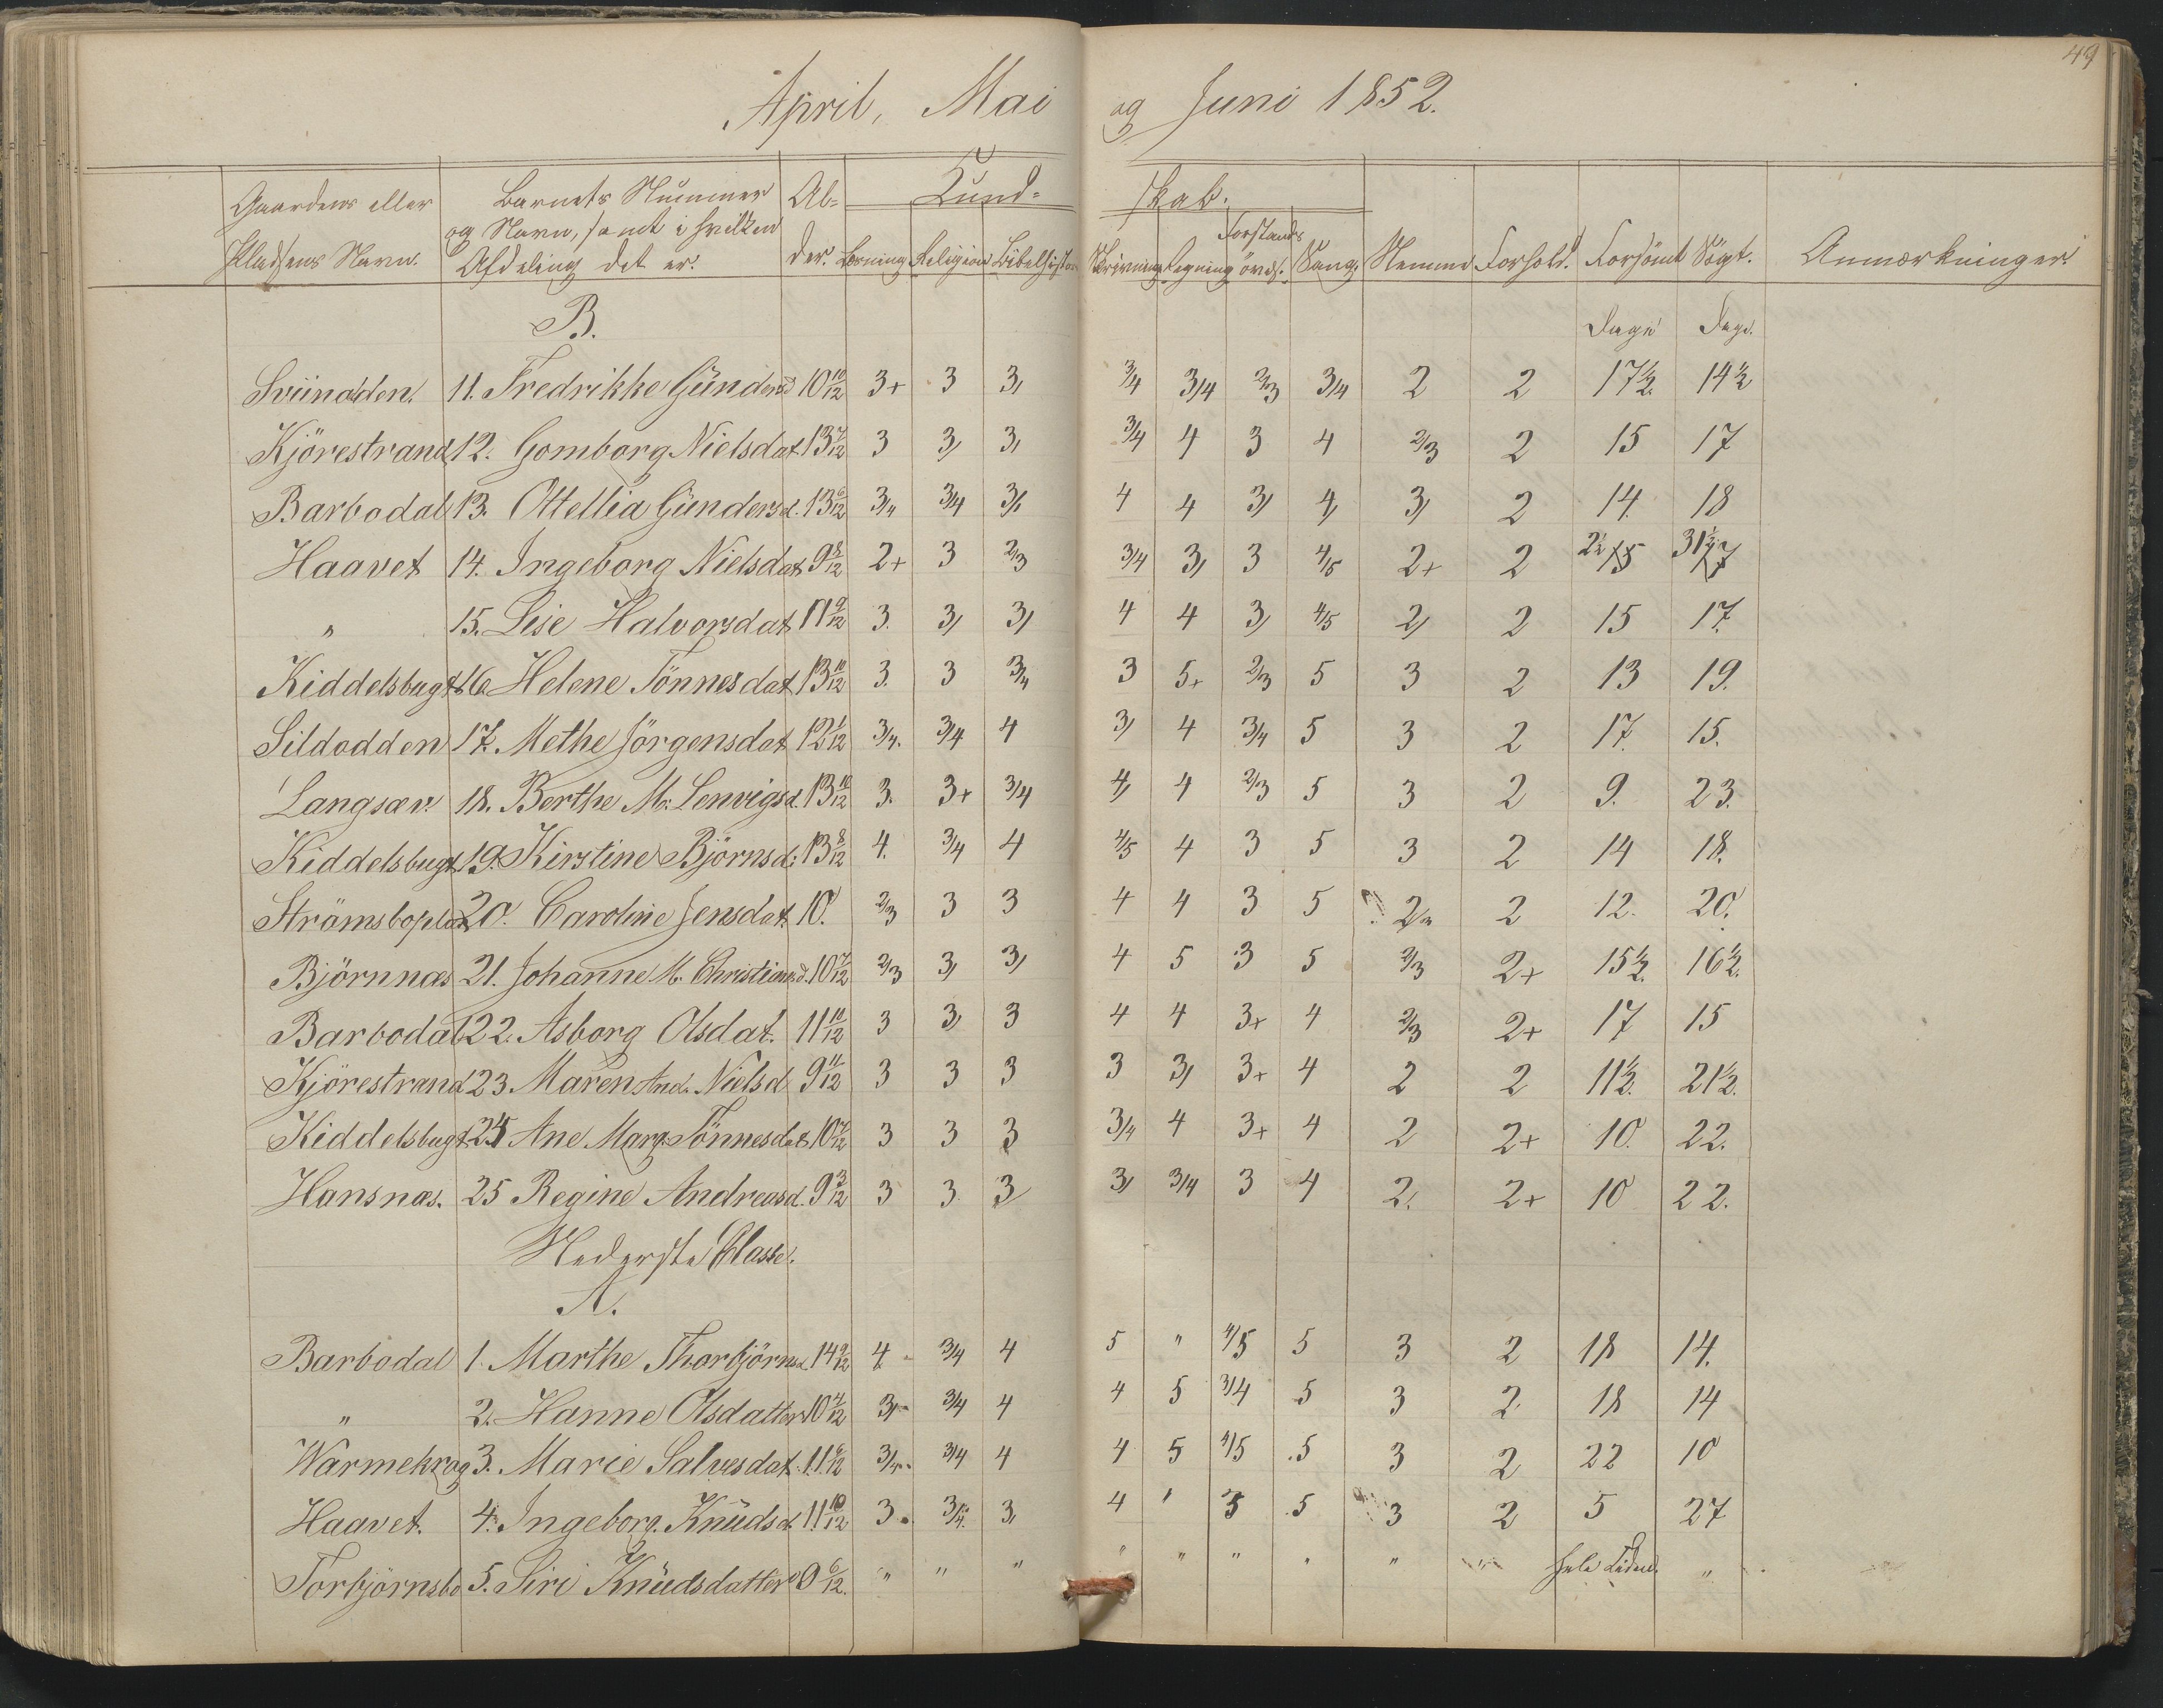 49
April, Mai og Juni 1852.
Gaardens eller Pladsens Navn. Barnets Nummer og Navn, samt i hvilken Afdeling det er. Alder. Kundskab. Nemme Forhold. Forsømt Søgt. Anmærkninger.
Læsning Religion Bibelhistorie Skrivning Regning Forstandsöv. Sang.
B. Dage Dage.
11. Fredrikke Gundersd 10 10/12 3+ 3 3, 3/4 3/4 2/3 3/4 2 2 17½ 14½
Kjörestrand 12. Gomborg Nielsdat 13 7/12 3 3, 3, 3/4 4 3 4 2/3 2 15 17
Barbodal 13. Ottellia Gundersd. 13 6/12 3/4 3/4 3/ 4 4 3, 4, 3, 2 14 18
Haavet 14. Ingeborg Nielsdat 9 8/12 2+ 3 2/3 3/4 3, 3 4/5 2+ 2 2½ 15 31½ 17
" 15. Lise Halvorsdat 11 9/12 3. 3, 3, 4 4 3, 4/5 2, 2 15 17.
Kiddelsbugt 16 Helene Tönnesdat 13 10/12 3. 3 3/4 3 5+ 2/3 5 3 2 13 19.
Sildodden 17. Methe Jörgensdat 12 1/12 3/4. 3/4 4 3, 4 3/4 5 3 2 17. 15.
Langsæv. 18. Berthe M. Lenvigsd. 13 10/12 3. 3+ 3/4 4, 4 2/3 5 3 2 9. 23.
Kiddelsbugt 19. Kirstine Björnsd: 13 8/12 4. 3/4 4 4/5 4 3 5 3 2 14 18.
Strömsboplad 20. Caroline Jensdat. 10. 2/3 3 3 4 4 3 5 2 12. 20.
Björnnæs 21. Johanne M. Christiansd. 10 7/12 2/3 3, 3, 4 5 3 5 2/3 2+ 15½ 16½.
Barbodal 22. Asborg Olsdat. 11 10/12 3 3, 3 4 4 3+ 4 2/3 2+ 17 15
Kjörestrand 23. Maren And. Nielsd 9 11/12 3 3 3 3 3, 3+ 4 2 2 11½. 21½.
Kiddelsbugt 24 Ane Marg. Tönnesdat 10 7/12 3 3 3 3/4 4 3+ 4 2 2+ 10. 22.
Hansnæs. 25 Regine Andreasd. 9 3/12 3 3 3, 3, 3/4 3 4 2. 2+ 10 22.
Nederste Classe.
A.
Barbodal 1. Marthe Thorbjörnsd. 14 9/12 4 3/4 4 5 " 4/5 5 3 2 18 14.
" 2. Hanne Olsdatter 10 4/12 3, 3/4 4 4 5 3/4 5 3 2 18 14
Warmekrog 3. Marie Salvesdat. 11 6/12 3/4. 3/4 4 4 5 4/5 5 3 2 22 10
Haavet. 4. Ingeborg Knudsd. 11 10/12 3. 3/4. 3, 4 " 3 5 3 2 5 27
Torbjörnsbo 5. Siri Knudsdatter 6/12. " " " " " " " " " hele Tiden. "